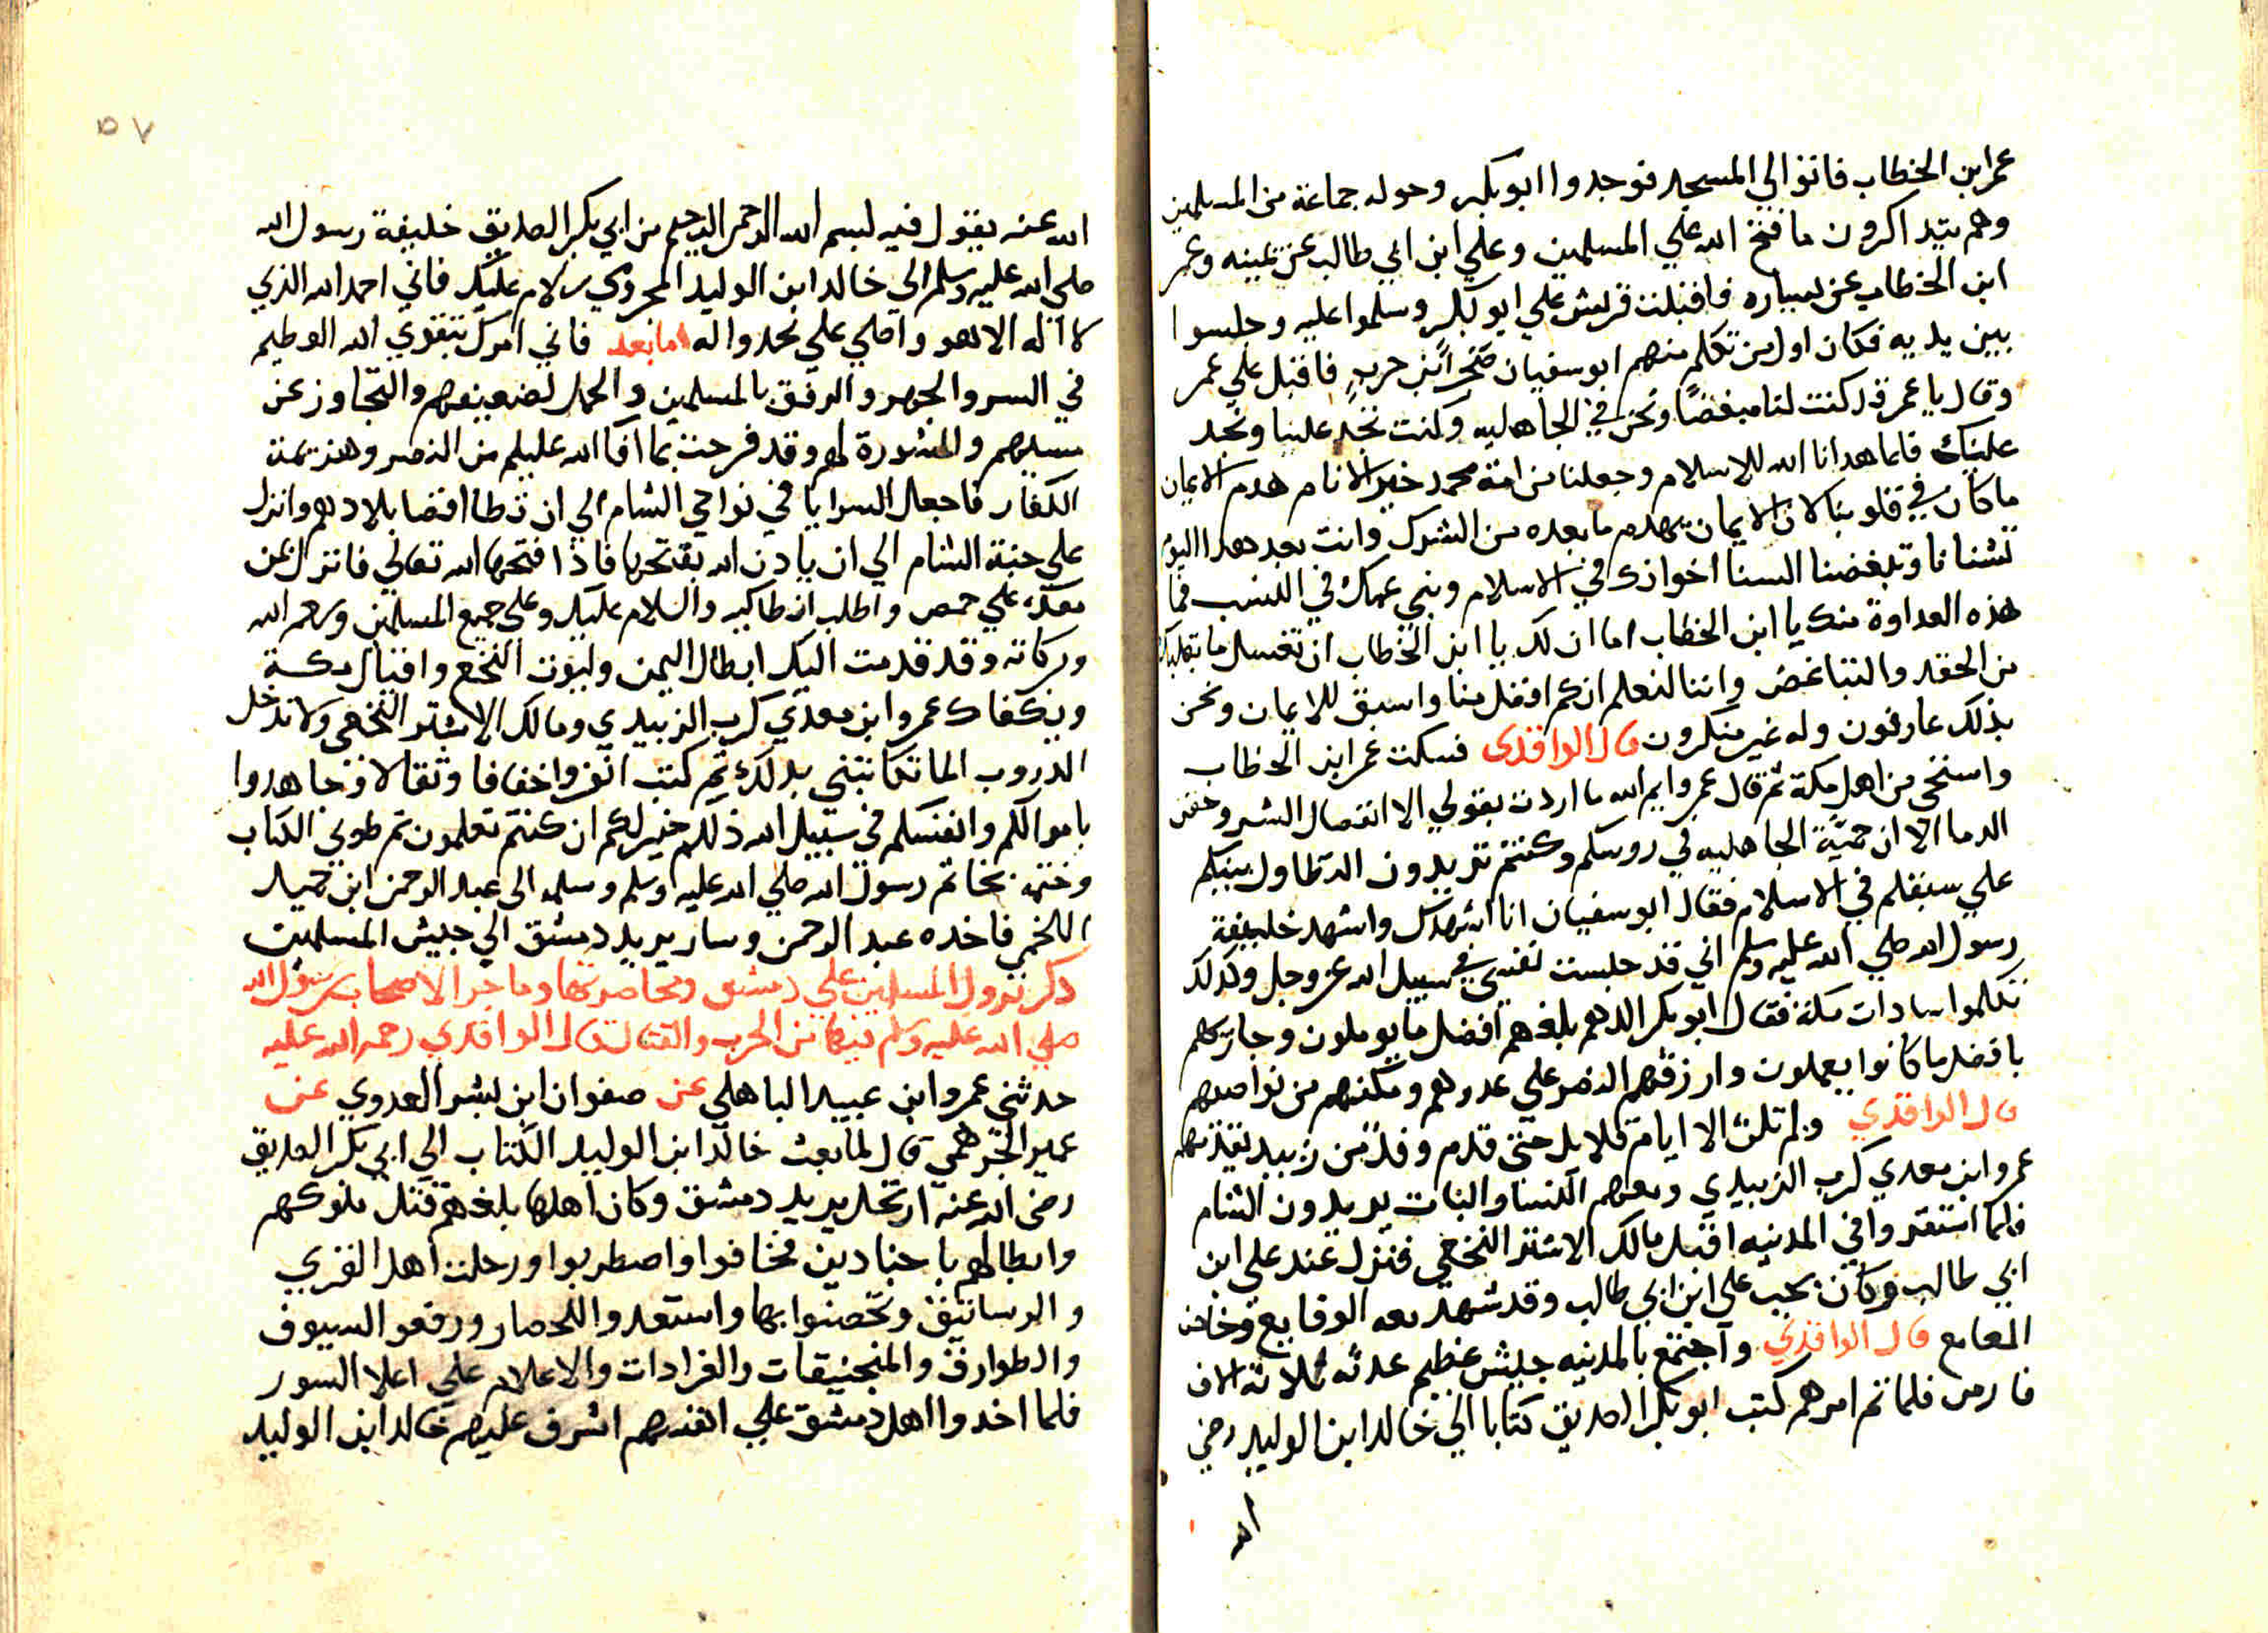 عمر ابن الخطاب فاتوا الي المسجد فوجدوا ابو بكر وحوله جماعة من المسلمين
وهم يتداكرون ما فتح الله علي المسلمين وعلي ابن ابي طالب عن يمينه وعمر
ابن الخطاب عن يساره فاقبلت قريش علي ابو بكر وسلموا عليه وجلسوا
بين يديه فكان اول من تكلم منهم ابو سفيان صخر ابن حرب فاقبل علي عمر
وقال يا عمر قد كنت لنا مبغضا ونحن في الجاهليه وكنت تجد علينا ونجد
عليك فلما هدانا الله للاسلام وجعلنا من امة محمد خير الانام هدم الايمان
ما كان في قلوبنا لان الايمان يهدم ما بعده من الشرك وانت بعد هدا اليوم
تشنانا وتبغضنا السنا اخوانك في الاسلام وبني عمك في النسب فما
هذه العداوة منك يا ابن الخطاب اما ان لك يا ابن الخطاب ان تغسل ما بقلبك
من الحقد والتباغض واننا لنعلم انكم افضل منا واسبق للايمان ونحن
بذلك عارفون وله غير منكرون قال الواقدي فسكت عمر ابن الخطاب
واستحي من اهل مكة ثم قال عمر وايم الله ما اردت بقولي الا انفصال الشر وحقن
الدما الا ان حمية الجاهليه في روسكم وكنتم تريدون التطاول بينكم
علي سبقكم في الاسلام فقال ابو سفيان انا اشهدك واشهد خليفة
رسول الله صلي الله عليه وسلم اني قد حبست نفسي في سبيل الله عز وجل وكدلك
تكلموا سادات مكة فقال ابو بكر اللهم بلغهم افضل ما يوملون وجازيهم
بافضل ما كانوا يعملون وارزقهم النصر علي عدوهم ومكنهم من نواصيهم
قال الواقدي ولم تلبث الا ايام قلايل حتي قدم وفد من زبيد يقدمهم
عمرو ابن معدي كرب الزبيدي ومعهم النسا والبنات يريدون الشام
فلما استقروا في المدنيه اقبل مالك الاشتر النخعي فنزل عند علي ابن
ابي طالب وكان يحب علي ابن ابي طالب وقد شهد معه الوقايع وخاض
المعامع قال الواقدي واجتمع بالمدنيه جيش عظيم عدته ثلاثة الاف
فارس فلما تم امرهم كتب ابو بكر الصديق كتابا الي خالد ابن الوليد رضي
الله
٥٧
الله عنه يقول فيه بسم الله الرحمن الرحيم من ابي بكر الصديق خليفة رسول الله
صلي الله عليه وسلم الي خالد ابن الوليد المخزومي سلام عليك فاني احمد الله الذي
لا اله الا هو واصلي علي محمد واله اما بعد فاني امرك بتقوي الله العظيم
في السر والجهر والرفق بالمسلمين والحمل لضعيفهم والتجاوز عن
مسيهم والمشورة لهم وقد فرحت بما افا الله عليكم من النصر وهزيمة
الكفار فاجعل السرايا في نواحي الشام الي ان تطا اقصا بلادهم وانزل
علي جنة الشام الي ان يادن الله بفتحها فاذا فتحها الله تعالي فانزل بمن
معك علي حمص واطلب انطاكيه والسلام عليك وعلي جميع المسلمين ورحمه الله
وبركاته وقد قدمت اليك ابطال اليمن وليوت النخع واقيال مكة
ويكفاك عمرو ابن معدي كرب الزبيدي ومالك الاشتر النخعي ولا تدخل
الدروب الما تكاتبني بدلك ثم كتب انفروا خفافا وثقالا وجاهدوا
باموالكم وانفسكم في سبيل الله ذلكم خير لكم ان كنتم تعلمون ثم طوي الكتاب
وختمه بخاتم رسول الله صلي الله عليه وسلم وسلمه الي عبد الرحمن ابن حميد
اللخمي فاخده عبد الرحمن وسار يريد دمشق الي جيش المسلمين
ذكر نزول المسلمين علي دمشق ومحاصرتها وما جرا لاصحاب رسول الله
صلي الله عليه وسلم فيها من الحرب والقتال قال الواقدي رحمه الله عليه
حدثني عمرو ابن عبيد الباهلي عن صفوان ابن بشر العدوي عن
عمير الجرهمي قال لما بعث خالد ابن الوليد الكتاب الي ابي بكر الصديق
رضي الله عنه ارتحل يريد دمشق وكان اهلها بلغهم قتل ملوكهم
وابطالهم باجنادين فخافوا واصطربوا ورحلت اهل القري
والرساتيق وتحصنوا بها واستعدوا للحصار ورفعو السيوف
والطوارق والمنجنيقات والعرادات والاعلام علي اعلا السور
فلما اخدوا اهل دمشق علي انفسهم اشرف عليهم خالد ابن الوليد